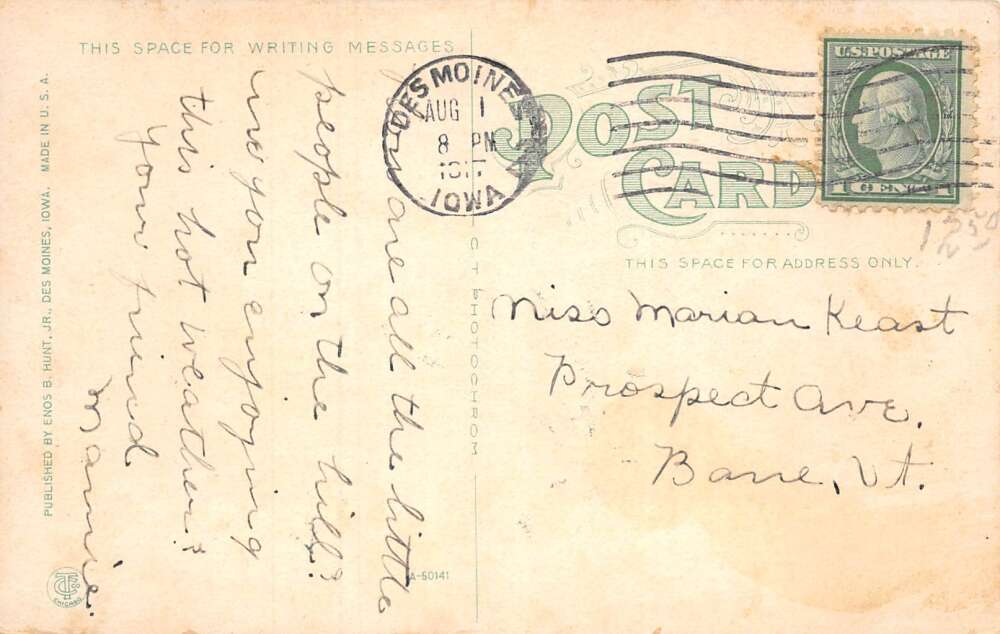 THIS SPACE FOR WRITING MESSAGES
are all the little
people on the hill?
are you enjoying
this hot weather?
Your friend
Mamie.
DES MOINES
AUG 1
8 PM
IOWA
POST
CARD
U.S. POSTAGE
1 CENT 1
1250
THIS SPACE FOR ADDRESS ONLY.
Miss Marian Keast
Prospect Ave.
Barre, Vt.
C T PHOTOCHROM
A-50141
PUBLISHED BY ENOS B. HUNT, JR., DES MOINES, IOWA. MADE IN U. S. A.
CHICAGO